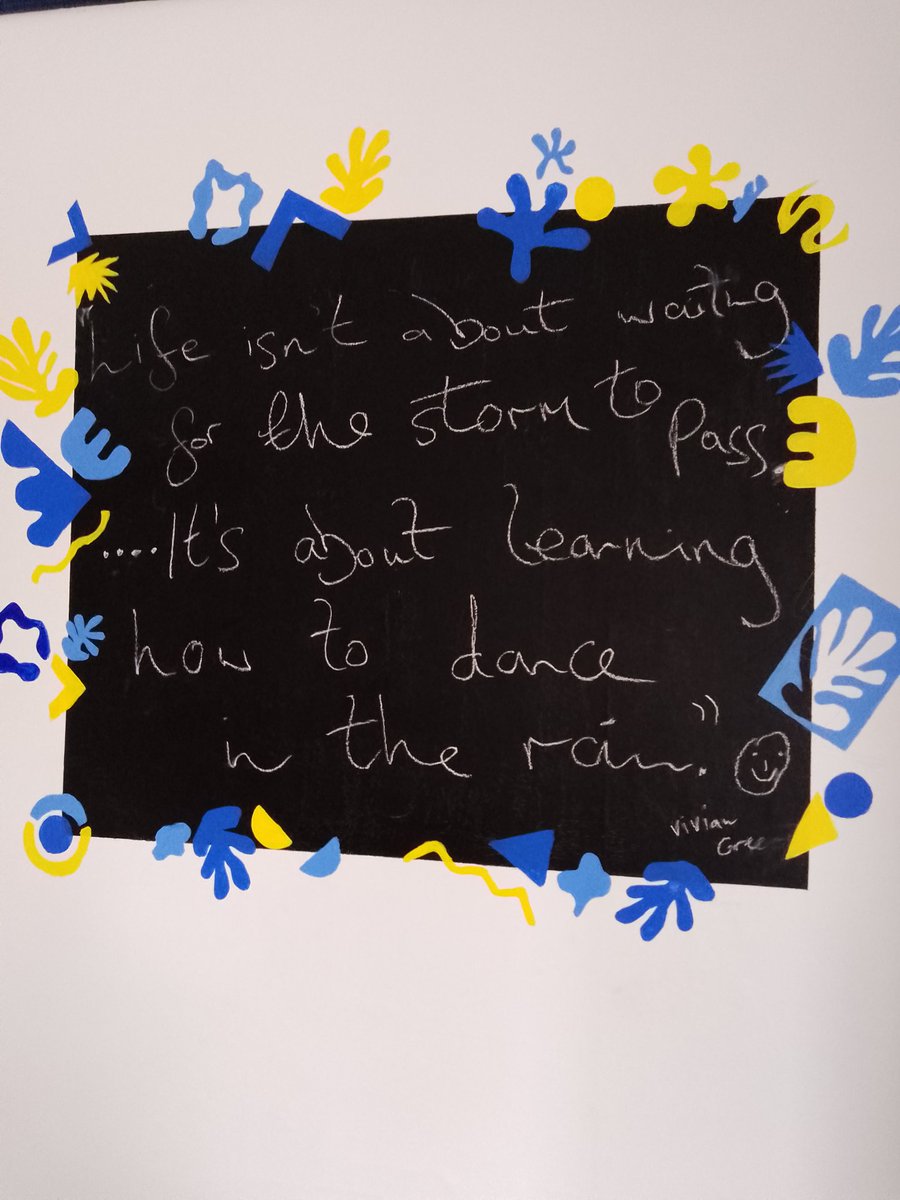 "Life isn't about waiting
for the storm to pass.
....It's about learning
how to dance
in the rain."
vivian
Green